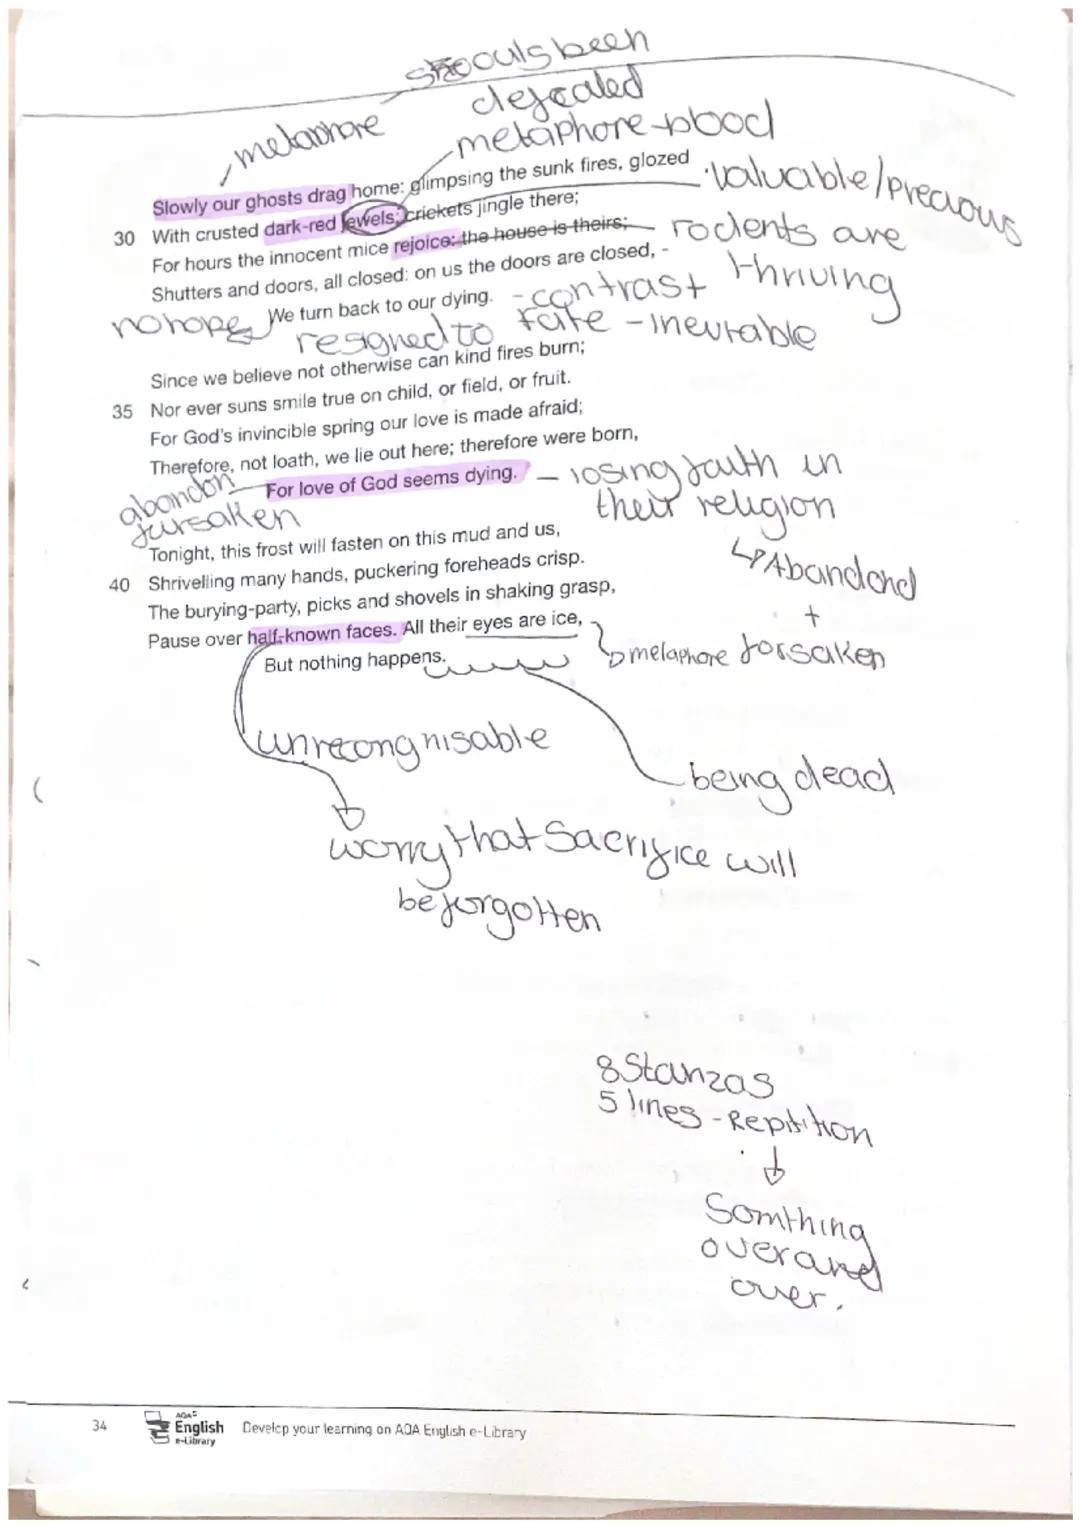 souls been
defeated
metaphore
metaphore → blood
Slowly our ghosts drag home: glimpsing the sunk fires, glozed
· valuable/precious
30 With crusted dark-red jewels; crickets jingle there;
For hours the innocent mice rejoice: the house is theirs;
rodents are thriving
Shutters and doors, all closed: on us the doors are closed, -
We turn back to our dying.
- contrast
no hope
resigned to fate - inevitable
Since we believe not otherwise can kind fires burn;
35 Nor ever suns smile true on child, or field, or fruit.
For God's invincible spring our love is made afraid;
Therefore, not loath, we lie out here; therefore were born,
For love of God seems dying.
— losing faith in
their religion
↳ Abandond
+
forsaken
abandon
fursaken
Tonight, this frost will fasten on this mud and us,
40 Shrivelling many hands, puckering foreheads crisp.
The burying-party, picks and shovels in shaking grasp,
Pause over half-known faces. All their eyes are ice,
metaphore
But nothing happens.
unrecongnisable
being dead
worry that Sacrifice will
be forgotten
8 Stanzas
5 lines - Repitition
Somthing
over and
over.
34
AQA
English
e-Library
Develop your learning on AQA English e-Library